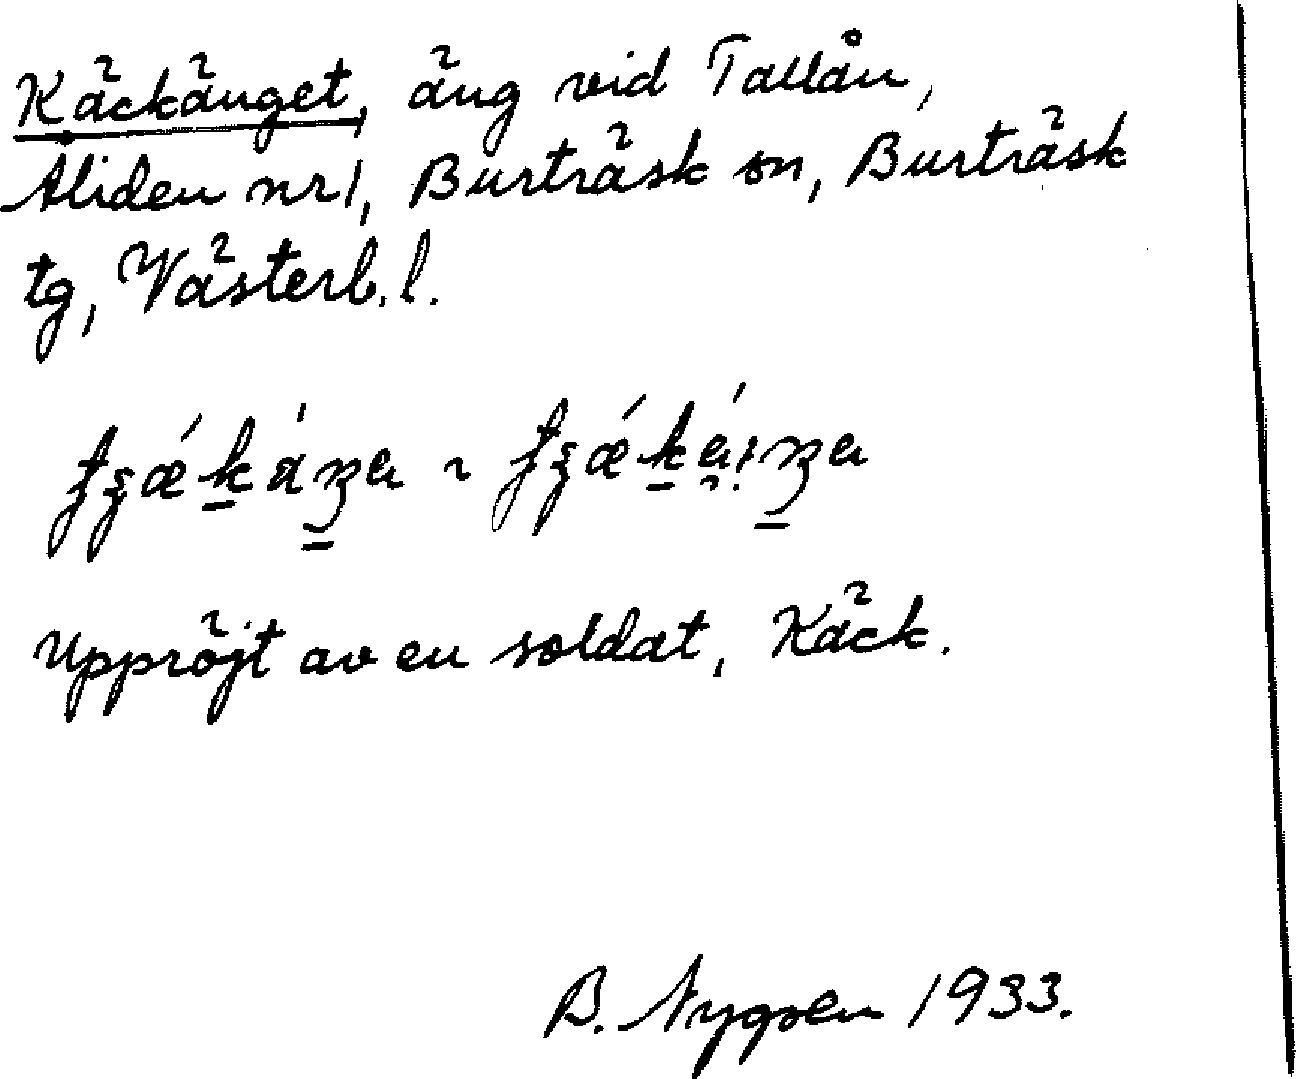 Käckänget, äng vid Tallån,
Åliden nr 1, Burträsk sn, Burträsk
tg, Västerb. l.
Uppröjt av en soldat, Käck.
B. 1933.